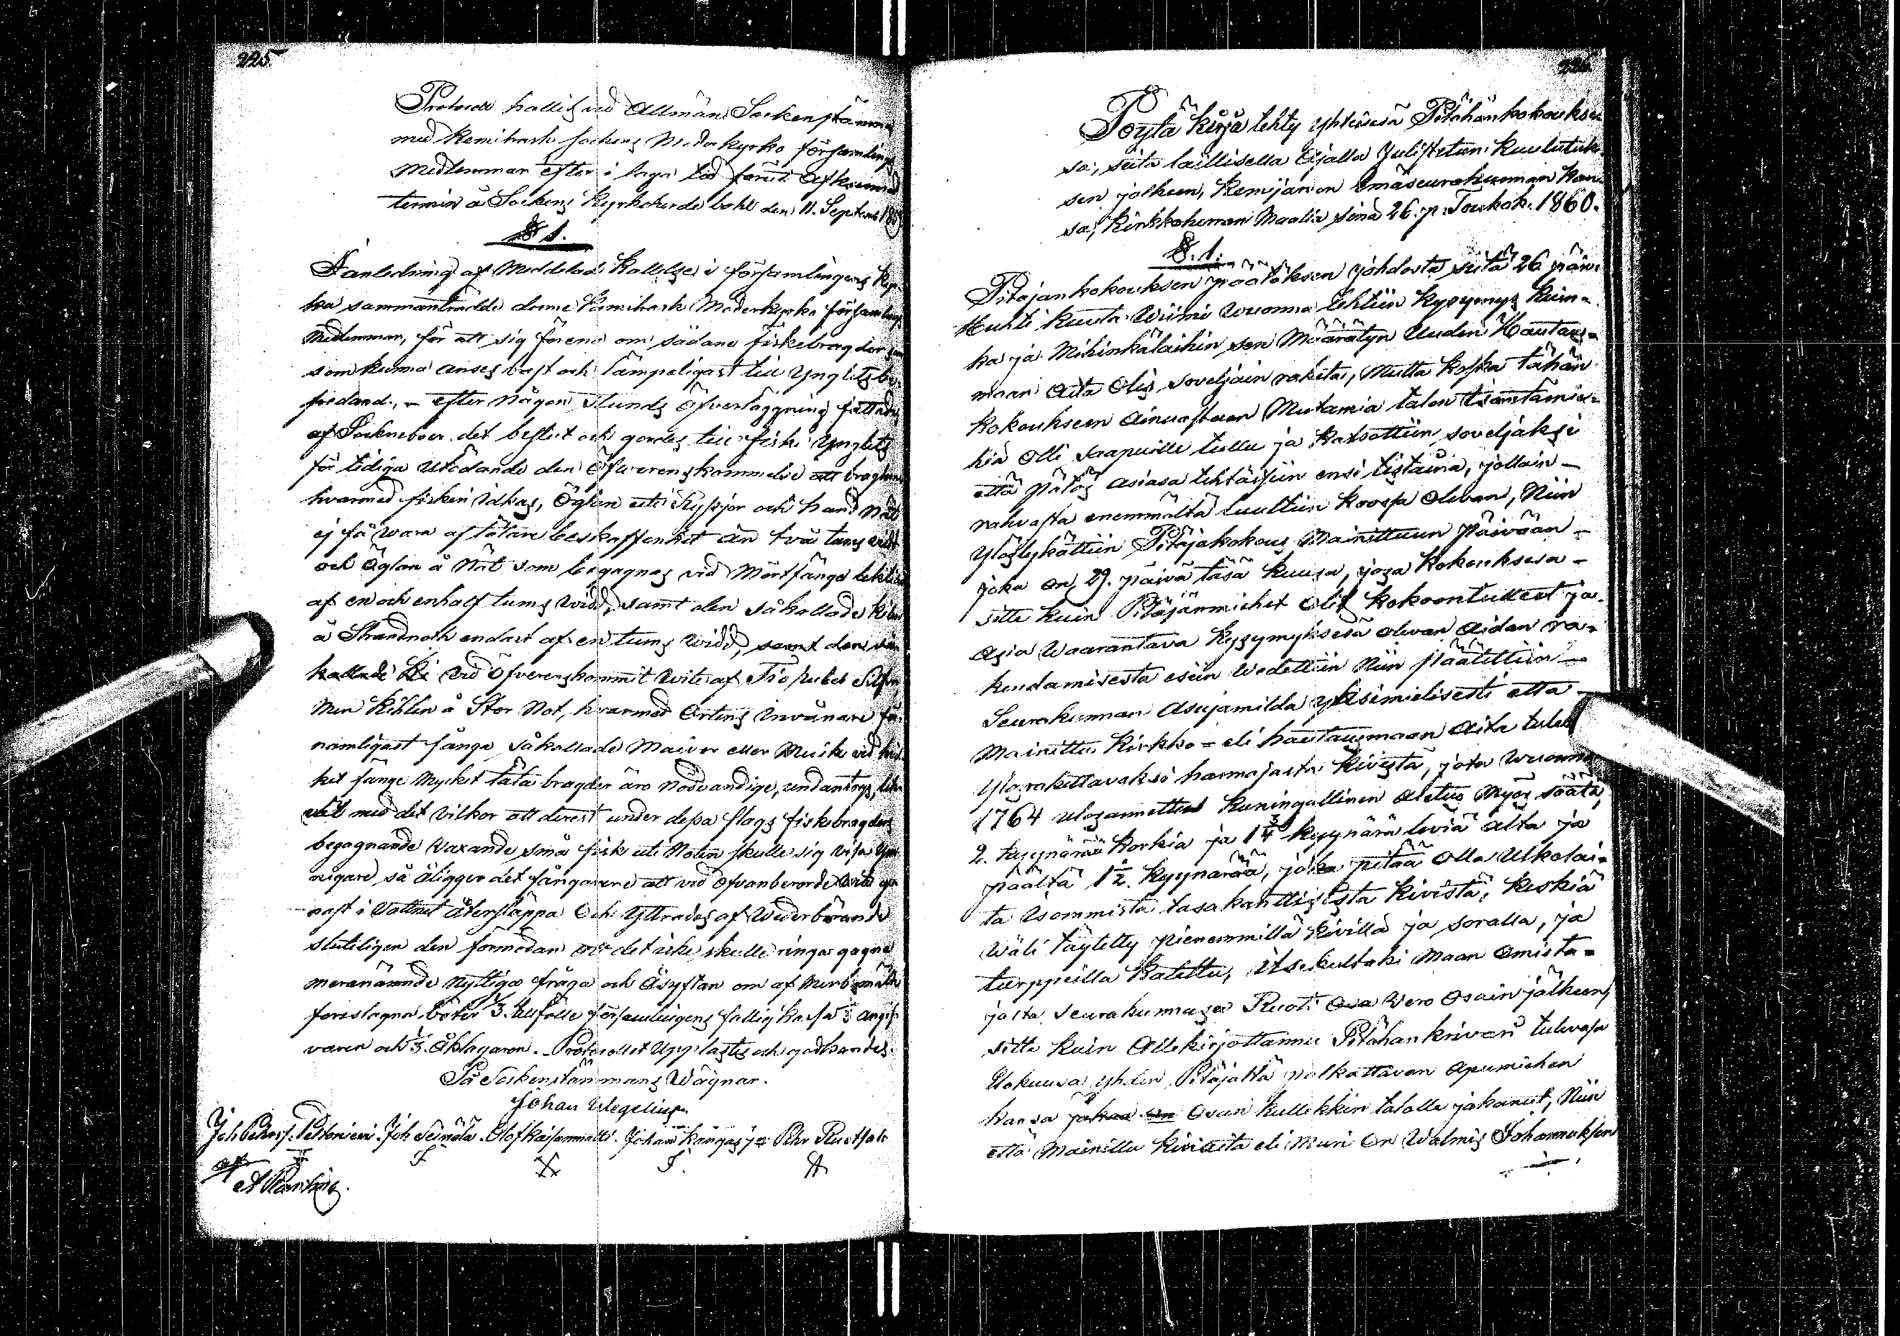 225.
Protocoll hållit vid Allmän Sockenstämma
med Kemiträsk Sockens Moderkyrko församlings
Medlemmar efter i laga tid förut afkunnad
termin å Sockens Kyrkoherde bohl den 11. Septemb. 1859
§ 1.
I anledning af Meddelad Kallelse i församlingens Kyr-
ka sammanträdde denne Kemiträsk Moderkyrko församlings
Medlemmar, för att sig förena om sådane fiskebragder
som kunna anses bäst och lämpeligast till Ynglets be-
fredand., - efter någon stunds öfverläggning fattades
af Sockneboer det beslut och gordes till fiske Ynglets
för tidiga utödande den Öfverenskommelse att bragder
hvarmed fisken idkas, Öglen uti Ryssjor och hand Nät
ej få wara af tätare beskaffenhet än två tums vidd
och Öglan å Nät som begagnas vid Mörtfånge
af en och enhalf tums widd, samt den såkallade Kilen
å Strandnoth endast af en tums widd, samt den så
kallade vid Öfverenskommit wite af Tio rubel Silfver
Men Kihlen å Stor Not, hvarmed Ortens invånare för
nämligast fånga såkallade Maivor eller Muik vid hvil-
ket fånge Mycket täta bragder äro nödvändige, undantogs,
med det vilkor att derest under dessa slags fiskebragders
begagnande waxande små fisk uti Noten skulle sig visa
så åligger det fångarene att vid ofvanberörde wite ge-
nast i Vattnet återsläppa Och Yttrades af Wederbörande
sluteligen den förmodan det icke skulle ringa gagna
merenämnde nyttiga fråga och Åsyftan om af
föreslagna böter 1/3. tillfölle församlingens fattig kassa 1/3 angif-
varen och 1/3 Åklagaren. Protocollet Upplästes och godkändes.
På Sockenstämmans Wägnar.
Johan Wegelius.
Joh. Seinälä. Olof Johan Kangas Pehr Ruotsal
226
Pöytä kirja tehty yhteisesä Pitähän kokoukse-
sa, siitä laillisella Ajalla Julistetun Kuulutuk-
sen jälkeen, Kemijärven Emäseurakunnan Kan-
sa, Kirkkoherran Maalia sinä 26. p. Toukok. 1860.
§. 1.
Pitäjan kokouksen päätöksen johdosta siitä 26 päiv.
Huhti kuuta Viimi vuonna tehtiin Kysymys kuin-
ka ja Mihinkälaihin sen Määrätyn Uuden Hautaus-
maan Aita Olis soveljain raketa, Mutta koska tähän
kokoukseen Ainoastaan Muutamia talon isäntämie-
hiä Olli saapuille tullu ja katsottiin soveljaksi
että päätös asiasa tehtäisiin ensi tistaina, jolloin -
rahvasta enemmältä luultiin koossa Olevan, Niin
Ylöslykättiin Pitäjäkokous Mainittuun päivään -
joka on 29. päivä täsä kuusa, josa Kokouksesa -
sitte kuin Pitäjänmiehet Olit kokoontulleet ja
Asia Waarantava Kysymyksesä olevan Aidan ra-
kendamisesta esiin Wedettiin Niin päätettiin -
Seurakunnan Asujamilda yksimielisesti että -
Mainittu Kirkko- eli hautausmaan Aita tulee
Ylösrakettavaksi harmajasta Kivestä, jota Wuonna
1764 ulosannettu Kuningallinen Asetus Myös säätä,
2. kyynärää Korkia ja 1 3/4 kyynärä leviä Alta ja
päältä 1 1/2. Kyynärää, joka pitää Olla Ulkolai-
ta Isommista tasakanttisesta kivistä, Keskiä
Wäli täytetty pienemmillä Kivillä ja soralla, ja
turppeilla Katettu, itsekultaki Maan Omista-
jasta seurakunnasa Ruoti Osa Wero Osain jälkeen,
sitte kuin Allekirjottannu Pitähänkrivari tulevasa
Elokuusa yhden Pitäjältä palkattavan Apumiehen
kansa Osan kullekkin talolle jakanut, Niin
että Mainittu kiviaita eli Muri on Walmis Johannuksen